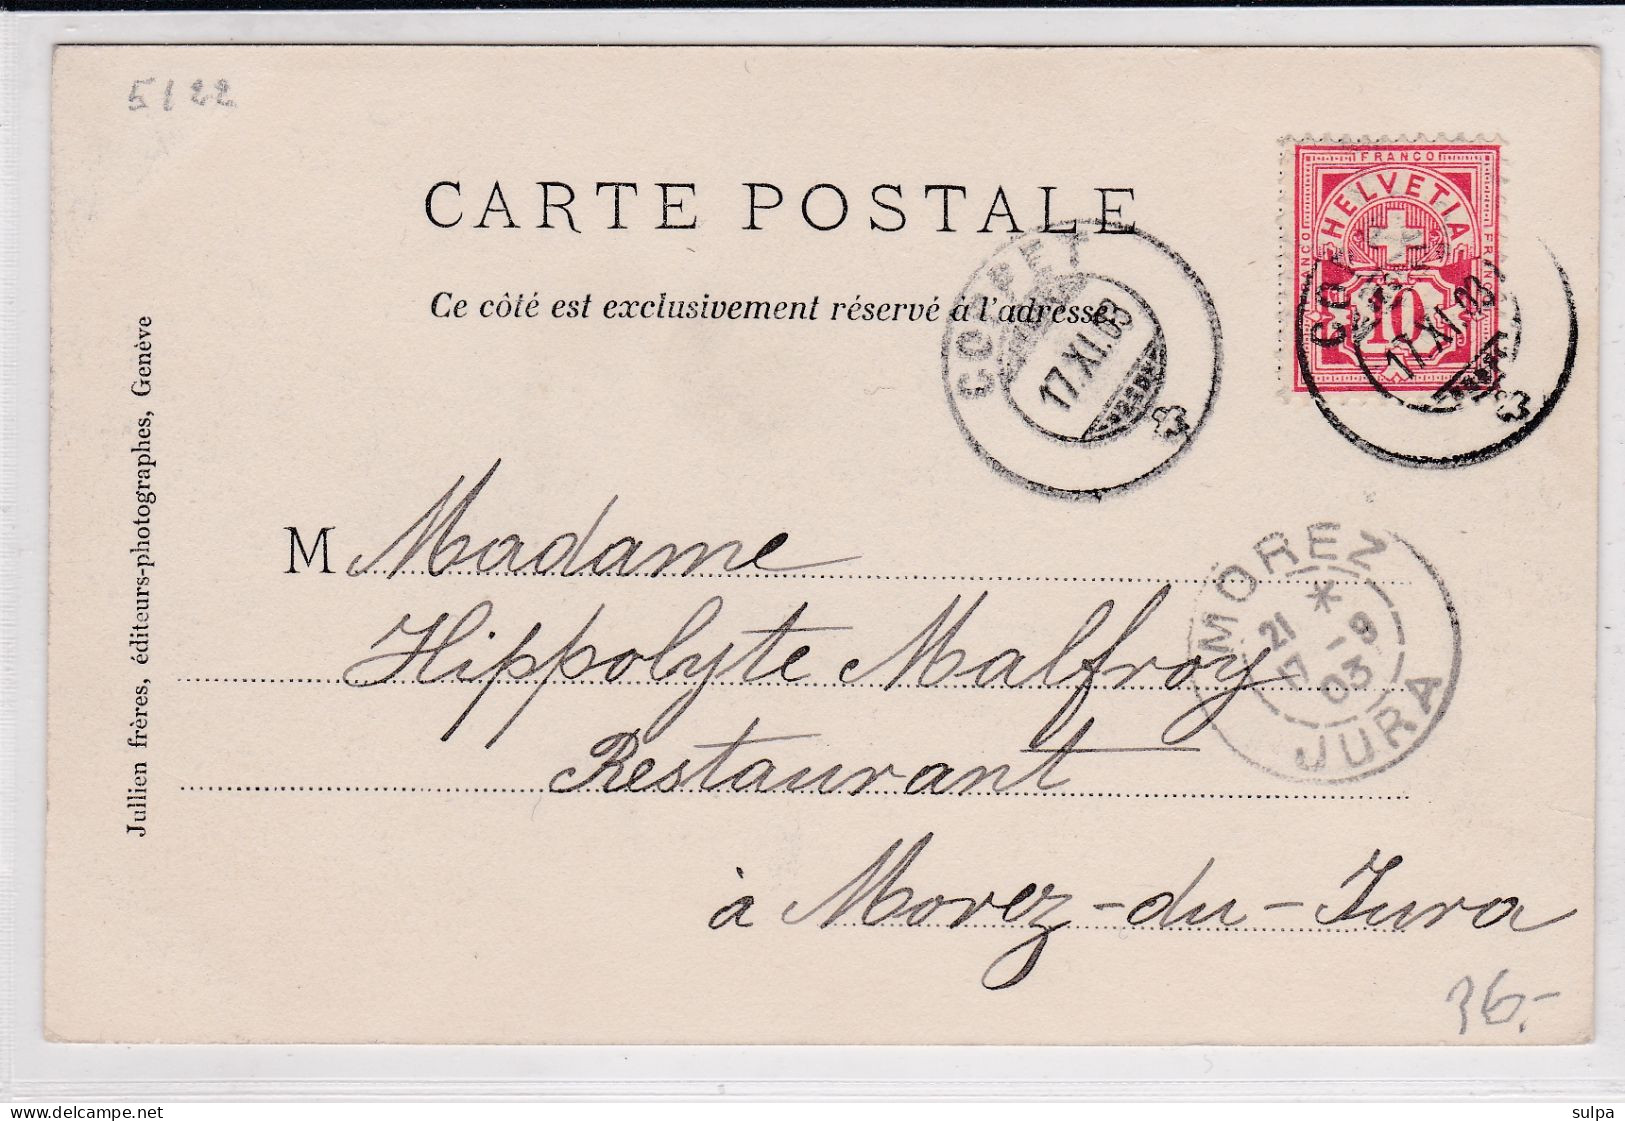 5122
CARTE POSTALE
Ce côté est exclusivement réservé à l'adresse.
FRANCO
HELVETIA
FRANCO
FRANCO
10
COPPET
17.XI.03
COPPET
17.XI.03
Jullien frères, éditeurs-photographes, Genève
M Madame
Hippolyte Malfroy
Restaurant
à Morez-du-Jura
MOREZ
21 -9
17 03
JURA
36.-
www.delcampe.net
sulpa